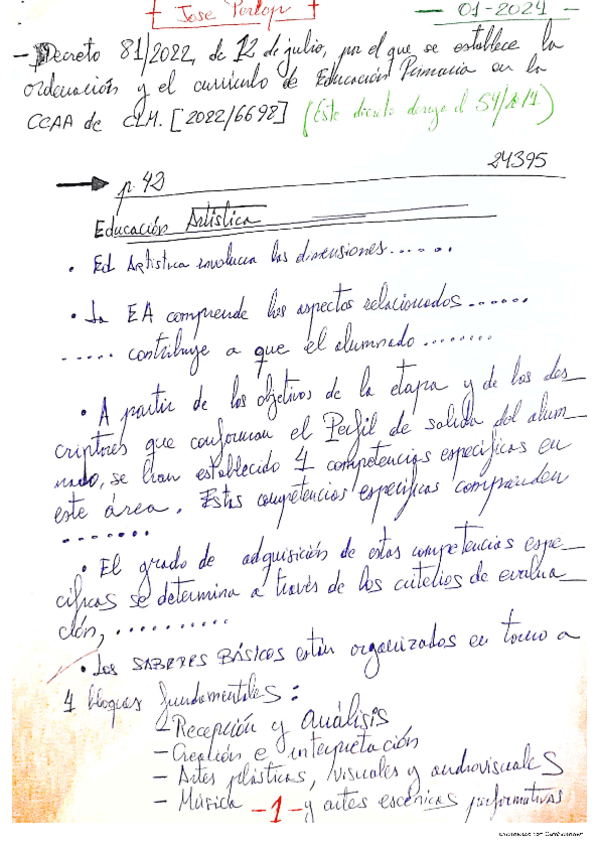 Jose Perlop
- 01-2024 -
- Decreto 81/2022, de 12 de julio, por el que se establece la
ordenación y el currículo de Educación Primaria en la
CCAA de CLM. [2022/6698] (Este decreto deroga el 54/2014)
24395
p. 42
Educación Artística
• Ed Artística involucra las dimensiones......
• La EA comprende los aspectos relacionados......
..... contribuye a que el alumnado ........
• A partir de los objetivos de la etapa y de los des_
criptores que conforman el Perfil de salida del alum
nado, se han establecido 4 competencias específicas en
este área. Estas competencias específicas comprenden
.......
• El grado de adquisición de estas competencias espe_
cíficas se determina a través de los criterios de evalua_
ción, ..........
• Los SABERES BÁSICOS están organizados en torno a
4 bloques fundamentales:
- Recepción y análisis
- Creación e interpretación
- Artes plásticas, visuales y audiovisuales
- Música y artes escénicas performativas
-1-